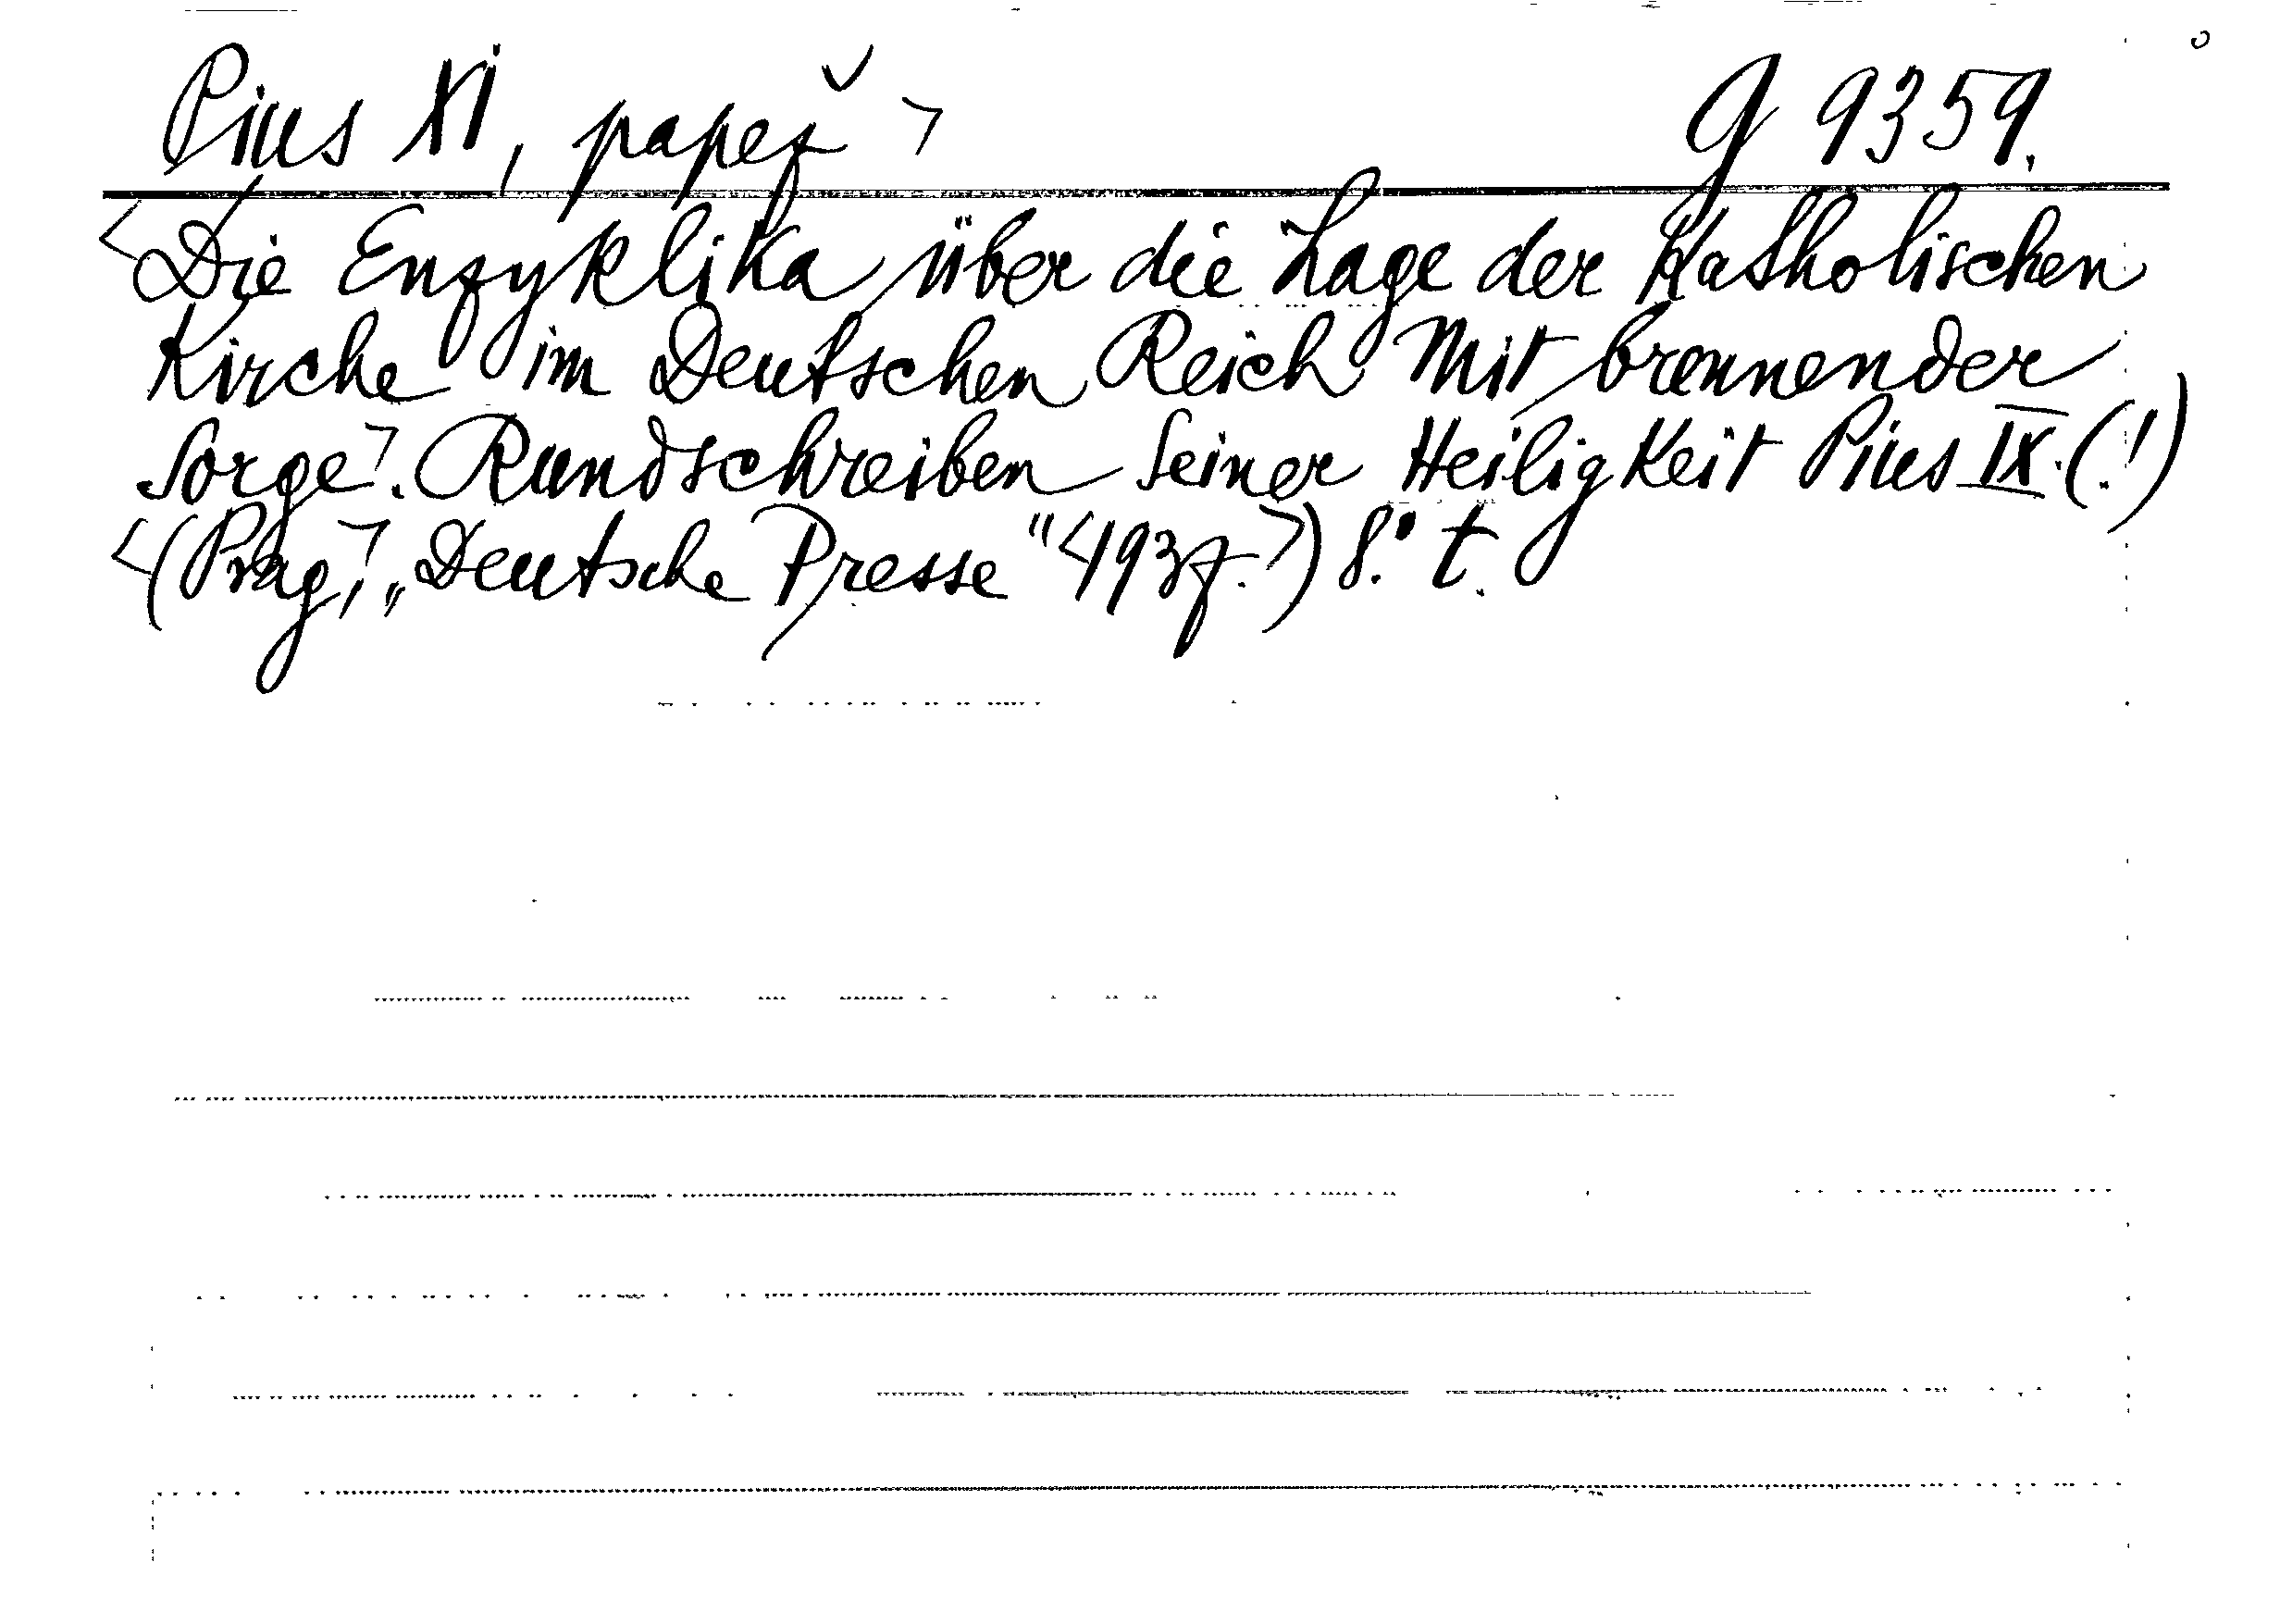 Pius XI, papež ㄱ g 9359.
<Die Enzyklika über die Lage der Katholischen
Kirche im Deutschen Reich Mit brennender
Sorge>. Rundschreiben Seiner Heiligkeit Pius IX. (!)
<(Prag>, „Deutsche Presse" <1937.>) 8.° t.